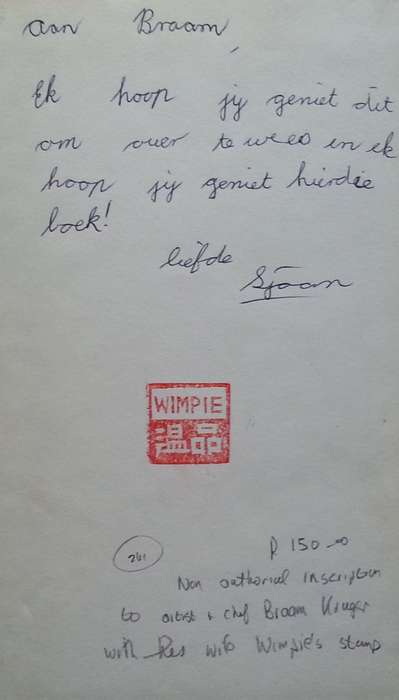 aan Braam,
Ek hoop jy geniet dit
om ouer te wees en ek
hoop jy geniet hierdie
boek!
liefde
Sjaan
WIMPIE
温品
241
R 150-00
Non authorial inscription
to artist & chef Braam Kruger
with his wife Wimpie's stamp